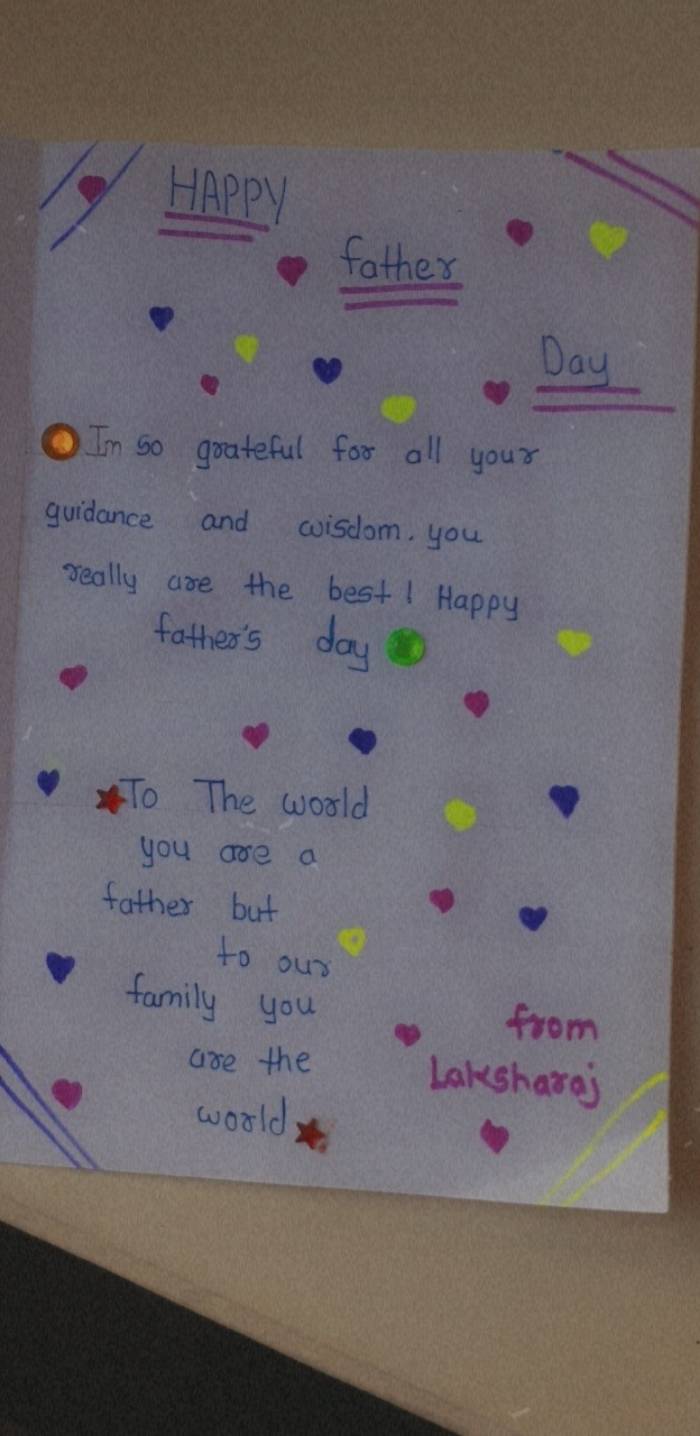 HAPPY
father
Day
Im so grateful for all your
guidance and wisdom. you
really are the best! Happy
father's day
To The world
you are a
father but
to our
family you
are the
world
from
Laksharaj